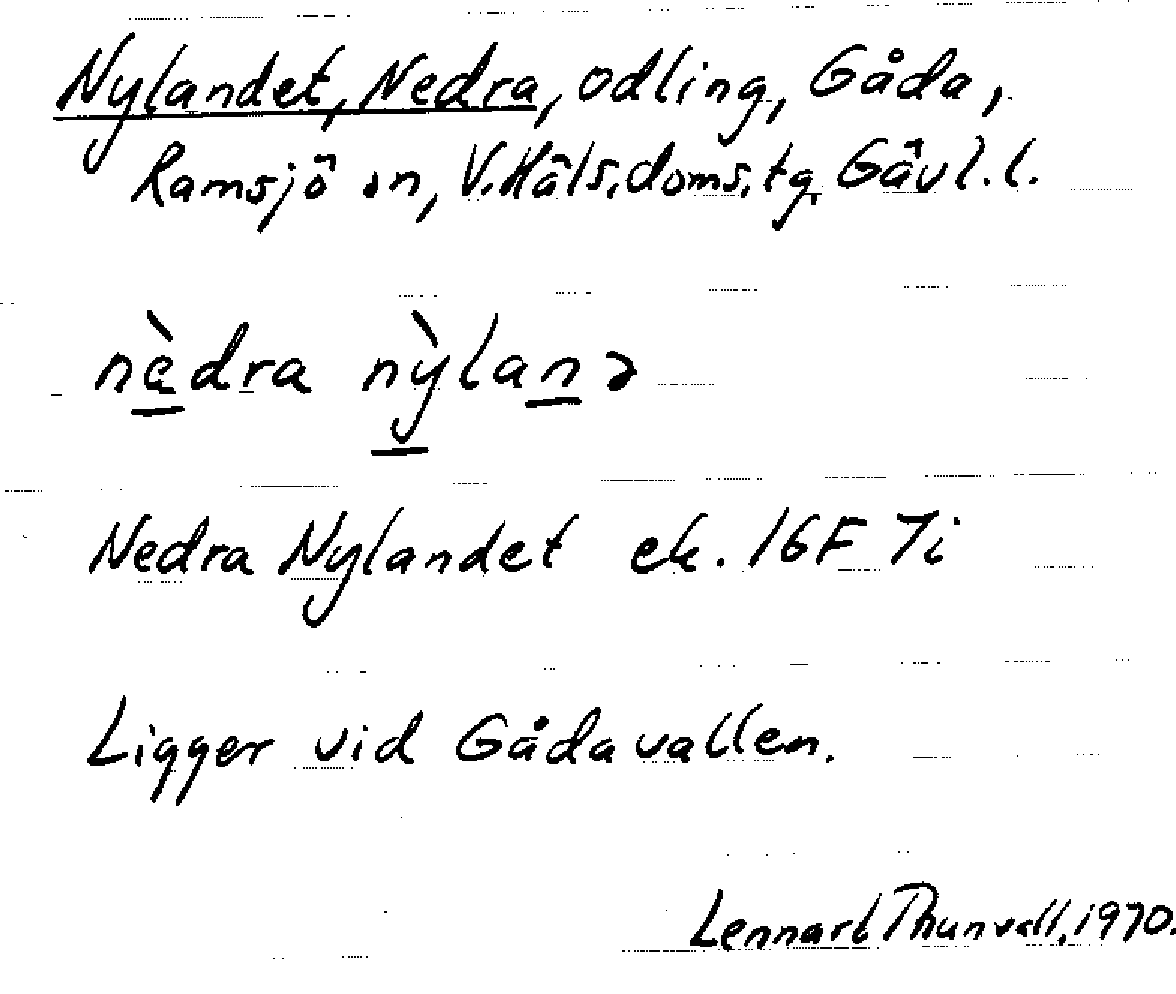 Nylandet, Nedra, odling, Gåda,
Ramsjö sn, V. Häls. doms. tg, Gävl. l.
nèdra nỳlanə
Nedra Nylandet ek. 16F 7i
Ligger vid Gådavallen.
Lennart Thunvall, 1970.